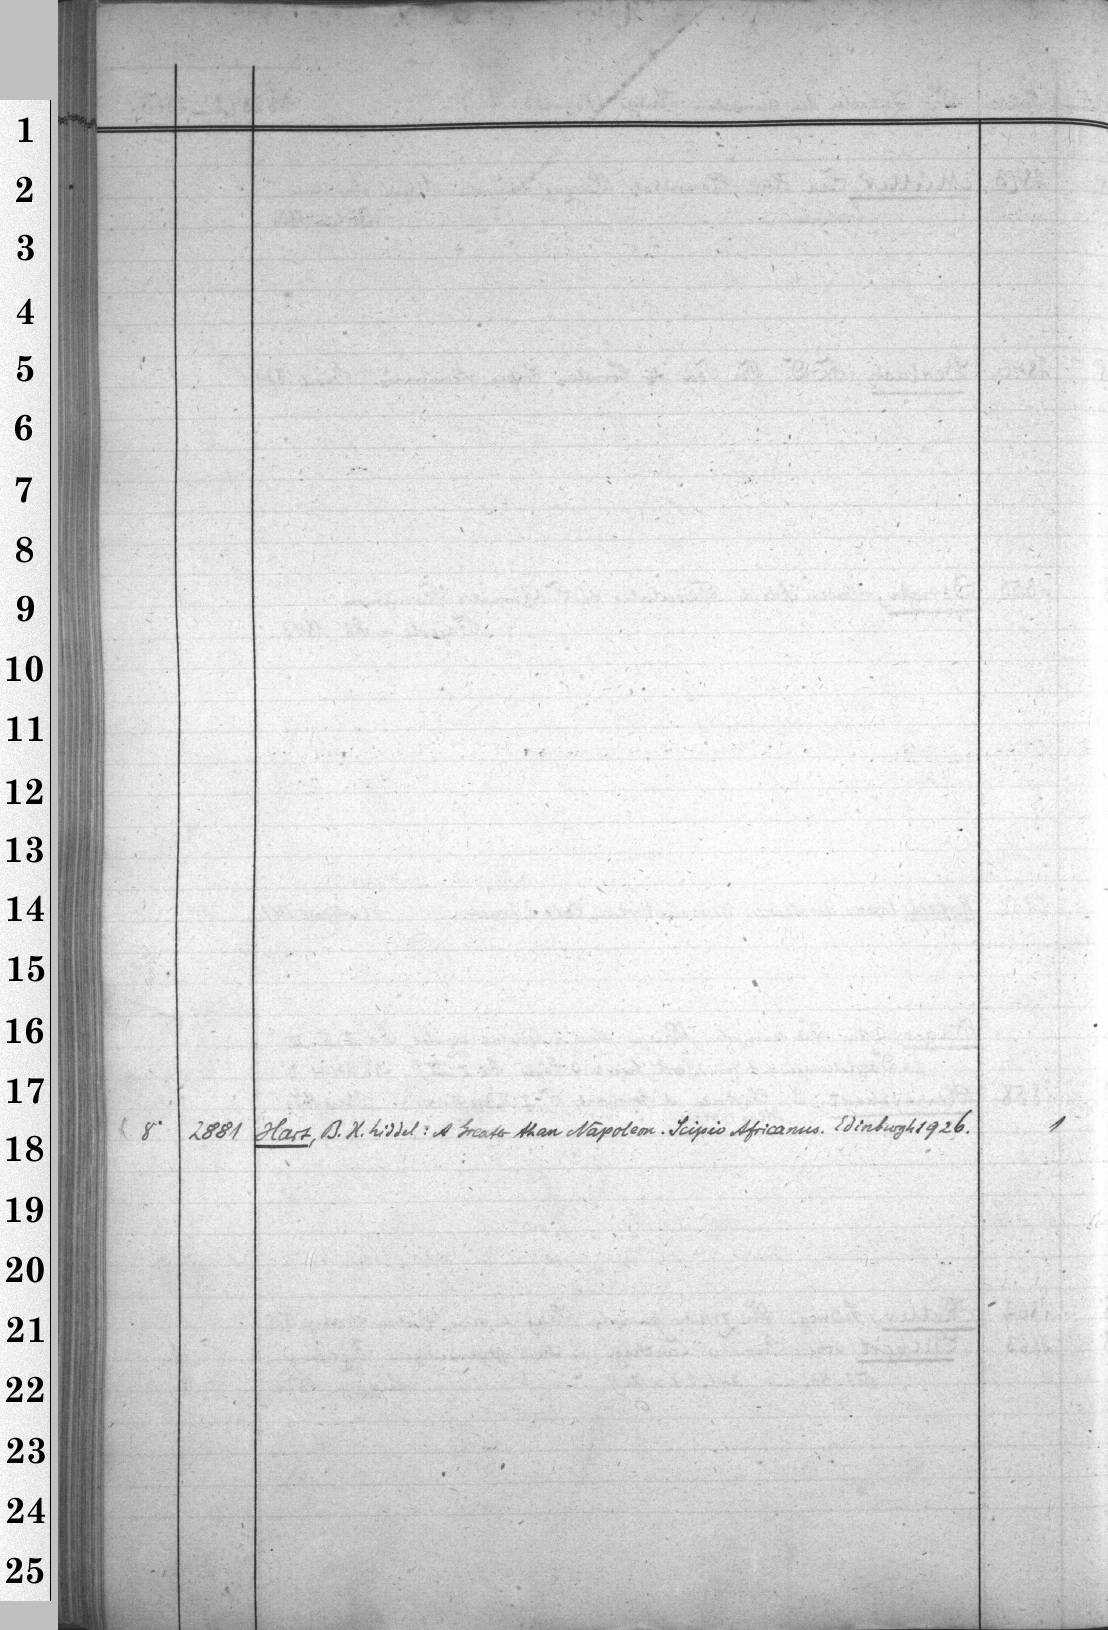 1
2
3
4
5
6
7
8
9
10
11
12
13
14
15
16
17
8° 2881 Hart, B. H. Liddel: A Greater than Napoleon. Scipio Africanus. Edinburgh 1926. 1
18
19
20
21
22
23
24
25